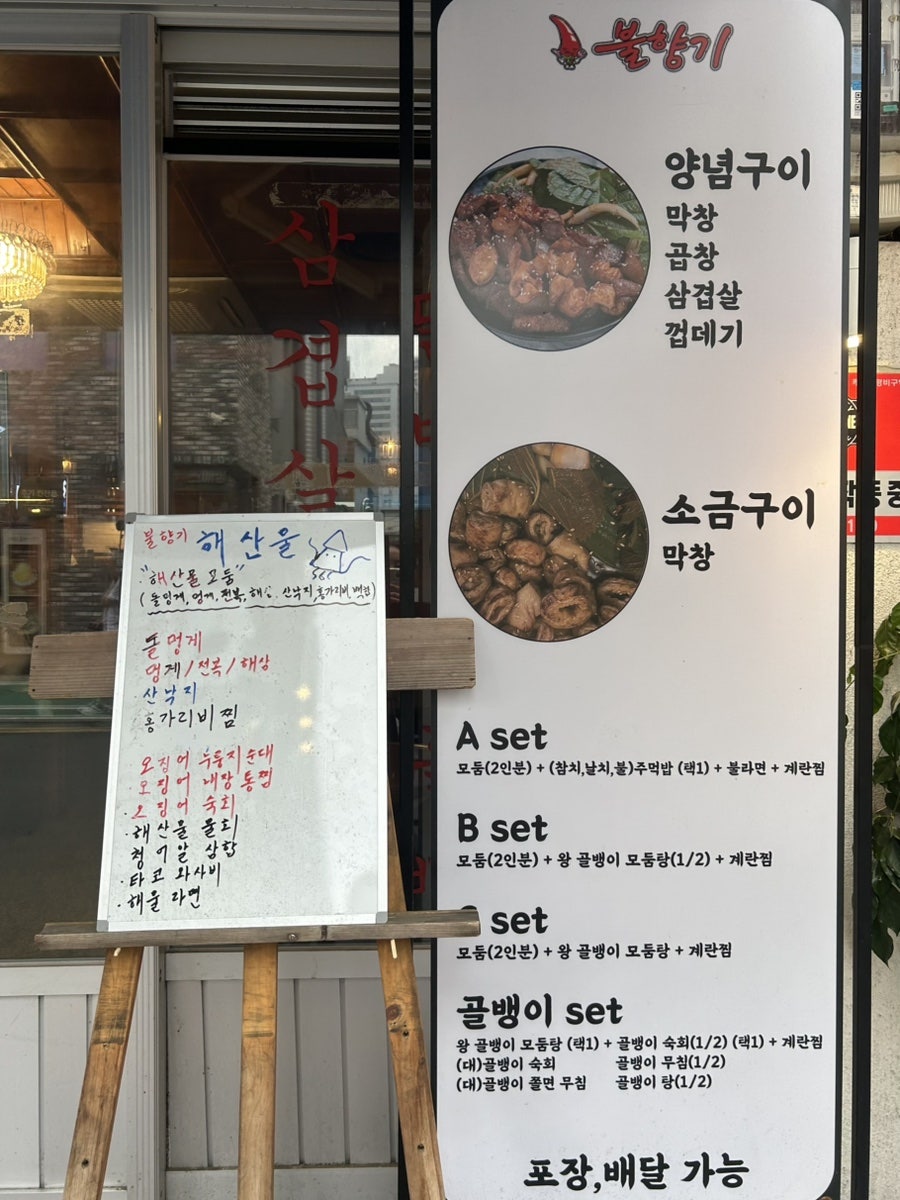 불향기
양념구이
막창
곱창
삼겹살
껍데기
소금구이
막창
A set
모둠(2인분) + (참치,날치,불)주먹밥 (택1) + 불라면 + 계란찜
B set
모둠(2인분) + 왕 골뱅이 모둠탕(1/2) + 계란찜
set
모둠(2인분) + 왕 골뱅이 모둠탕 + 계란찜
골뱅이 set
왕 골뱅이 모둠탕 (택1) + 골뱅이 숙회(1/2) (택1) + 계란찜
(대)골뱅이 숙회 골뱅이 무침(1/2)
(대)골뱅이 쫄면 무침 골뱅이 탕(1/2)
포장,배달 가능
삼겹살
불향기 해산물
"해산물 모둠"
(돌멍게, 멍게, 전복, 산낙지, 홍가리비
돌멍게
멍게/전복/해삼
산낙지
홍가리비찜
오징어 누룽지순대
오징어 내장통찜
오징어 숙회
해산물 물회
청어알 삼합
타코 와사비
해물 라면